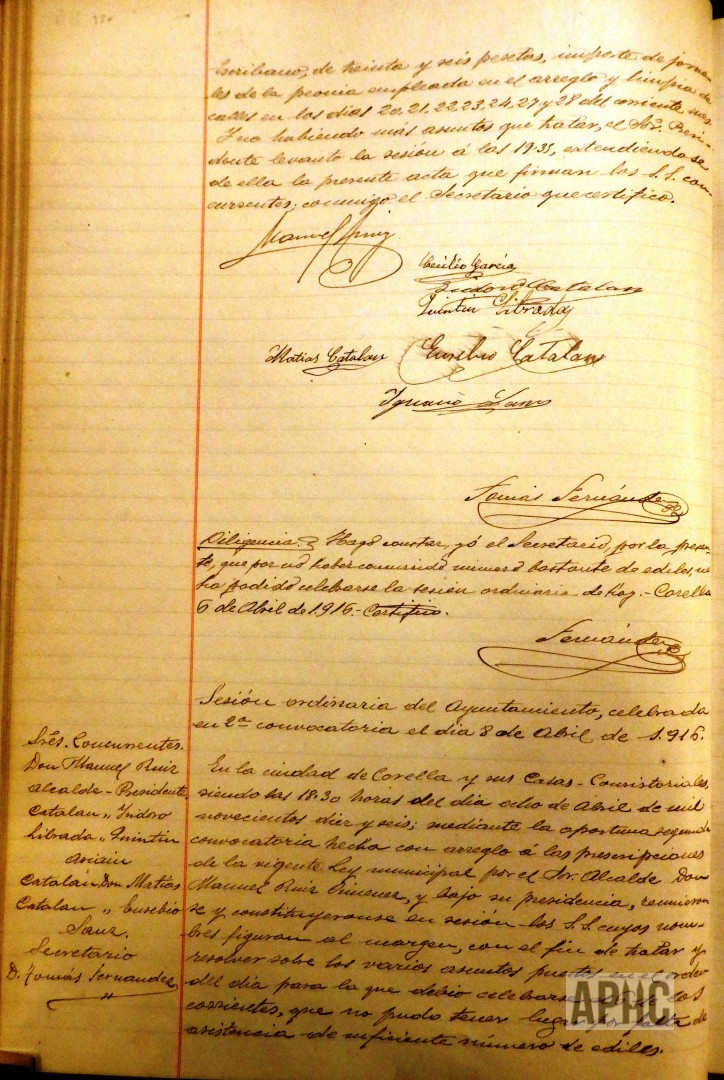 Escribano, de treinta y seis pesetas, importe de jorna-
les de la peonia empleada en el arreglo y limpia de
calles en los dias 20, 21, 22, 23, 24, 27 y 28 del corriente mes.
Y no habiendo más asuntos que tratar, el Sr. Presi-
dente levanto la sesión á las 19'35, extendiendose
de ella la presente acta que firman los S.S. con-
currentes; conmigo el Secretario que certifico.
Manuel Ruiz
Cecilio García
Isidoro Catalan
Quintin Librada
Matias Catalan
Eusebio Catalan
Ignacio Sanz
Tomás Fernández
Diligencia. Hago constar, yó el Secretario, por la presen-
te, que por nó haber concurrido número bastante de ediles, no
ha podido celebrarse la sesión ordinaria de hoy. - Corella
6 de Abril de 1916. - Certifico.
Fernández
Sesión ordinaria del Ayuntamiento, celebrada
en 2ª convocatoria el dia 8 de Abril de 1.916.
Srēs. Concurrentes.
Don Manuel Ruiz
Alcalde - Presidente
Catalan " Isidoro
Librada " Quintin
Asiain
Catalán Don Matias
Catalan " Eusebio
Sanz.
Secretario
D. Tomás Fernandez
En la ciudad de Corella y sus Casas - Consistoriales,
siendo las 18'30 horas del dia ocho de Abril de mil
novecientos diez y seis; mediante la oportuna segunda
convocatoria hecha con arreglo á las prescripciones
de la vigente Ley municipal por el Sr. Alcalde Don
Manuel Ruiz Gimenez, y bajo su presidencia, reunieron
se y constituyeronse en sesión los S.S. cuyos nom-
bres figuran al margen, con el fin de tratar y
resolver sobre los varios asuntos puestos en el orden
del dia para la que debió celebrarse el de los
corrientes, que no pudo tener lugar por falta de
asistencia de suficiente número de ediles.
APHC